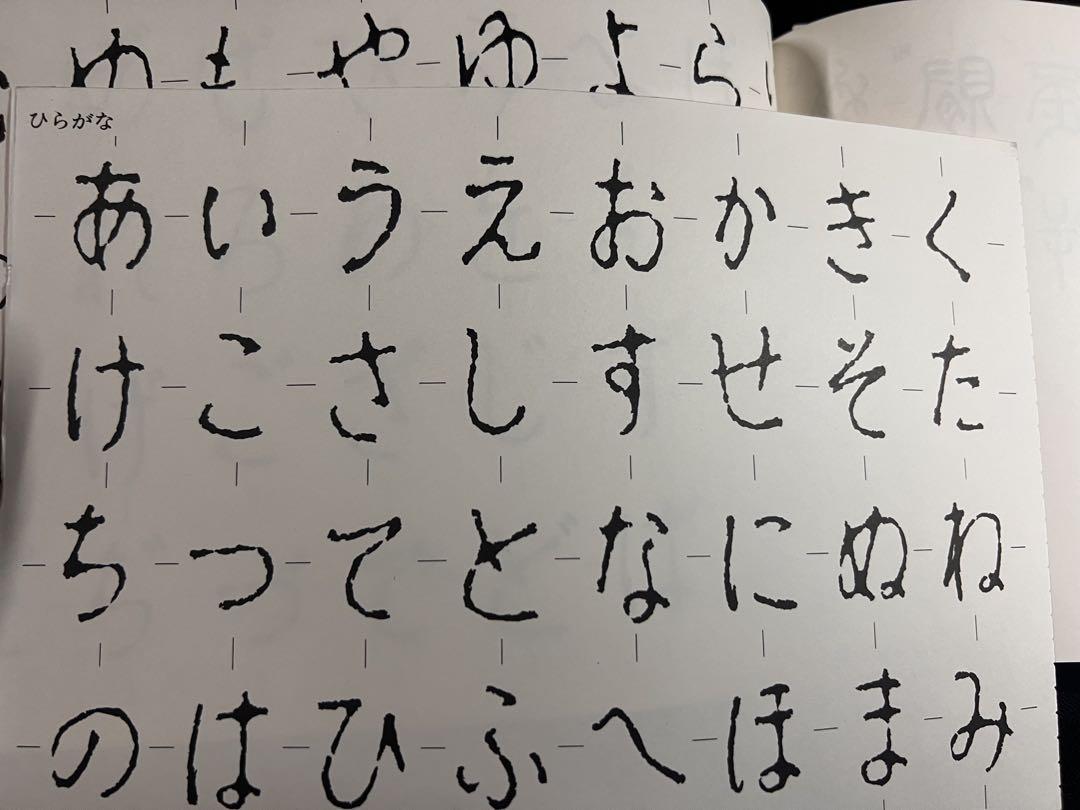 も や ゆ よ ら
ひらがな
あ い う え お か き く
け こ さ し す せ そ た
ち つ て と な に ぬ ね
の は ひ ふ へ ほ ま み